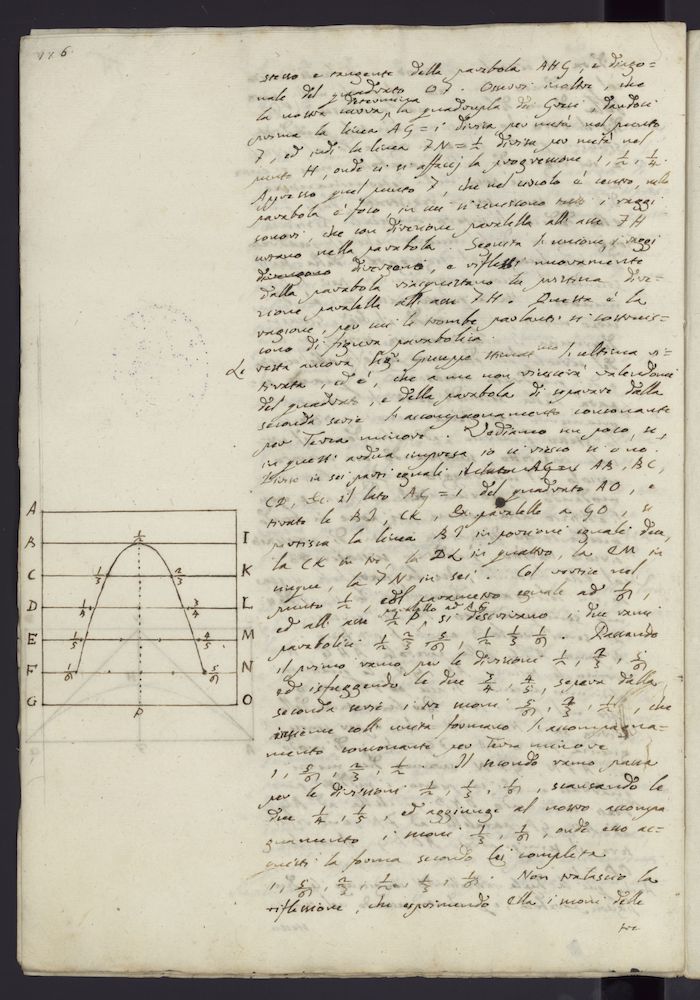 176.
stesso e tangente della parabola AHG, e diago=
nale del quadrato OF. Osservi inoltre, che
la nostra determina la quadrupla dei Greci, dandoci
prima la linea AG = 1 divisa per metà nel punto
F, ed indi la linea FN = 1/2 divisa per metà nel
punto H, onde ci si affaccj la progressione 1, 1/2, 1/4.
Appresso quel punto F, che nel circolo è centro, nella
parabola è foco, in cui si riuniscono tutti i raggi
sonori, che con direzione paralella all' asse FH
entrano nella parabola. Seguita l'unione, i raggi
divengono divergenti, e riflessi nuovamente
dalla parabola riacquistano la pristina dire=
zione paralella all' asse FH. Questa è la
ragione, per cui le trombe parlanti si costruis=
cono di figura parabolica.
Le resta ancora, Giuseppe l'ultima ri=
tirata, ed è, che a me non riuscirà valendomi
del quadrato, e della parabola di separare dalla
seconda serie l'accompagnamento consonante
per Terza minore. Vediamo un poco, se
in quest' ardua impresa io ci riesco sì o no.
Diviso in sei parti eguali AB, BC,
CD, &c. il lato AG = 1 del quadrato AO, e
tirate le BI, CK, &c. paralelle a GO, si
partisca la linea BI in porzioni eguali due,
la CK in tre, la DL in quattro, la EM in
cinque, la FN in sei. Col vertice nel
punto 1/2, col parametro eguale ad 1/6,
ed all' asse 1/2 P, paralello ad AG si descrivano i due rami
parabolici 1/2 2/3 5/6, 1/2 1/3 1/6. Passando
il primo ramo per le divisioni 1/2, 2/3, 5/6
ed isfuggendo le due 3/4, 4/5, separa dalla
seconda serie i tre suoni 5/6, 2/3, 1/2, che
insieme coll' unità formano l'accompagna=
mento consonante per Terza minore
1, 5/6, 2/3, 1/2. Il secondo ramo passa
per le divisioni 1/2, 1/3, 1/6, scansando le
due 1/4, 1/5, ed aggiunge al nostro accompa
gnamento i suoni 1/3, 1/6, onde esso ac=
quisti la forma secondo lei completa
1, 5/6, 2/3, 1/2, 1/3, 1/6. Non tralascio la
riflessione, che esprimendo Ella i suoni delle
A
B 1/2 I
C 1/3 2/3 K
D 1/4 3/4 L
E 1/5 4/5 M
F 1/6 5/6 N
G P O